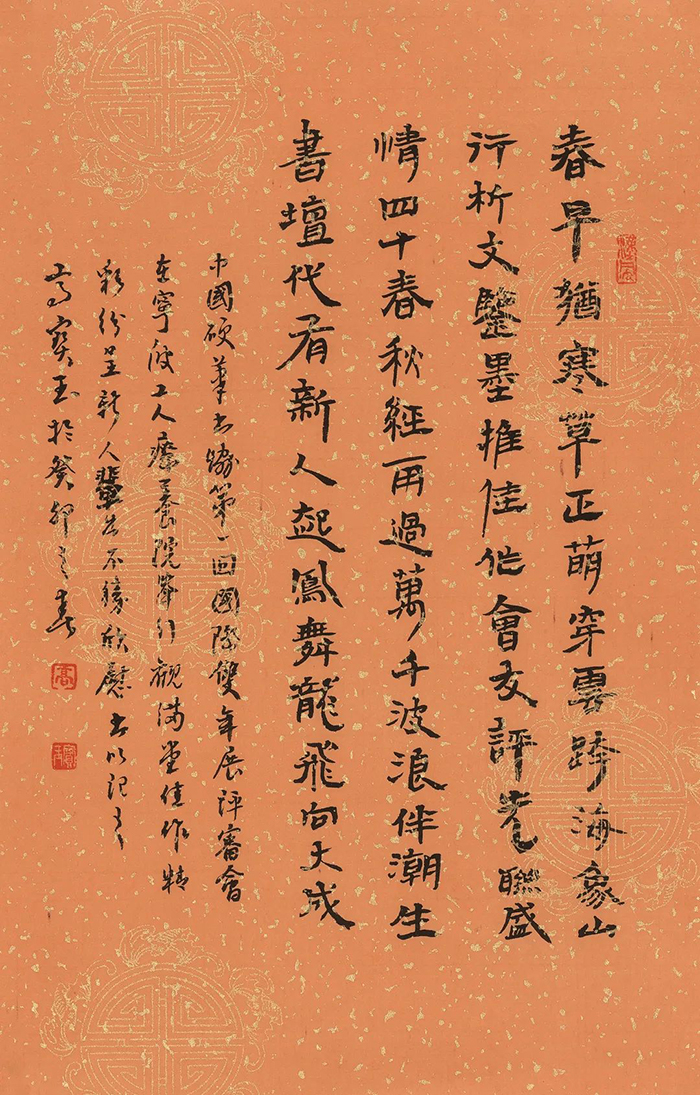 春早猶寒草正萌穿雲跨海象山
行析文鑒墨推佳作會友評先聯盛
情四十春秋經再過萬千波浪伴潮生
書壇代看新人起鳳舞龍飛向大成
中國硬筆書協第一回國際雙年展評審會
在寧波工人療養院舉行觀滿堂佳作精
彩紛呈新人輩出不勝欣慰書以記之
高寶玉於癸卯之春
高
寶玉